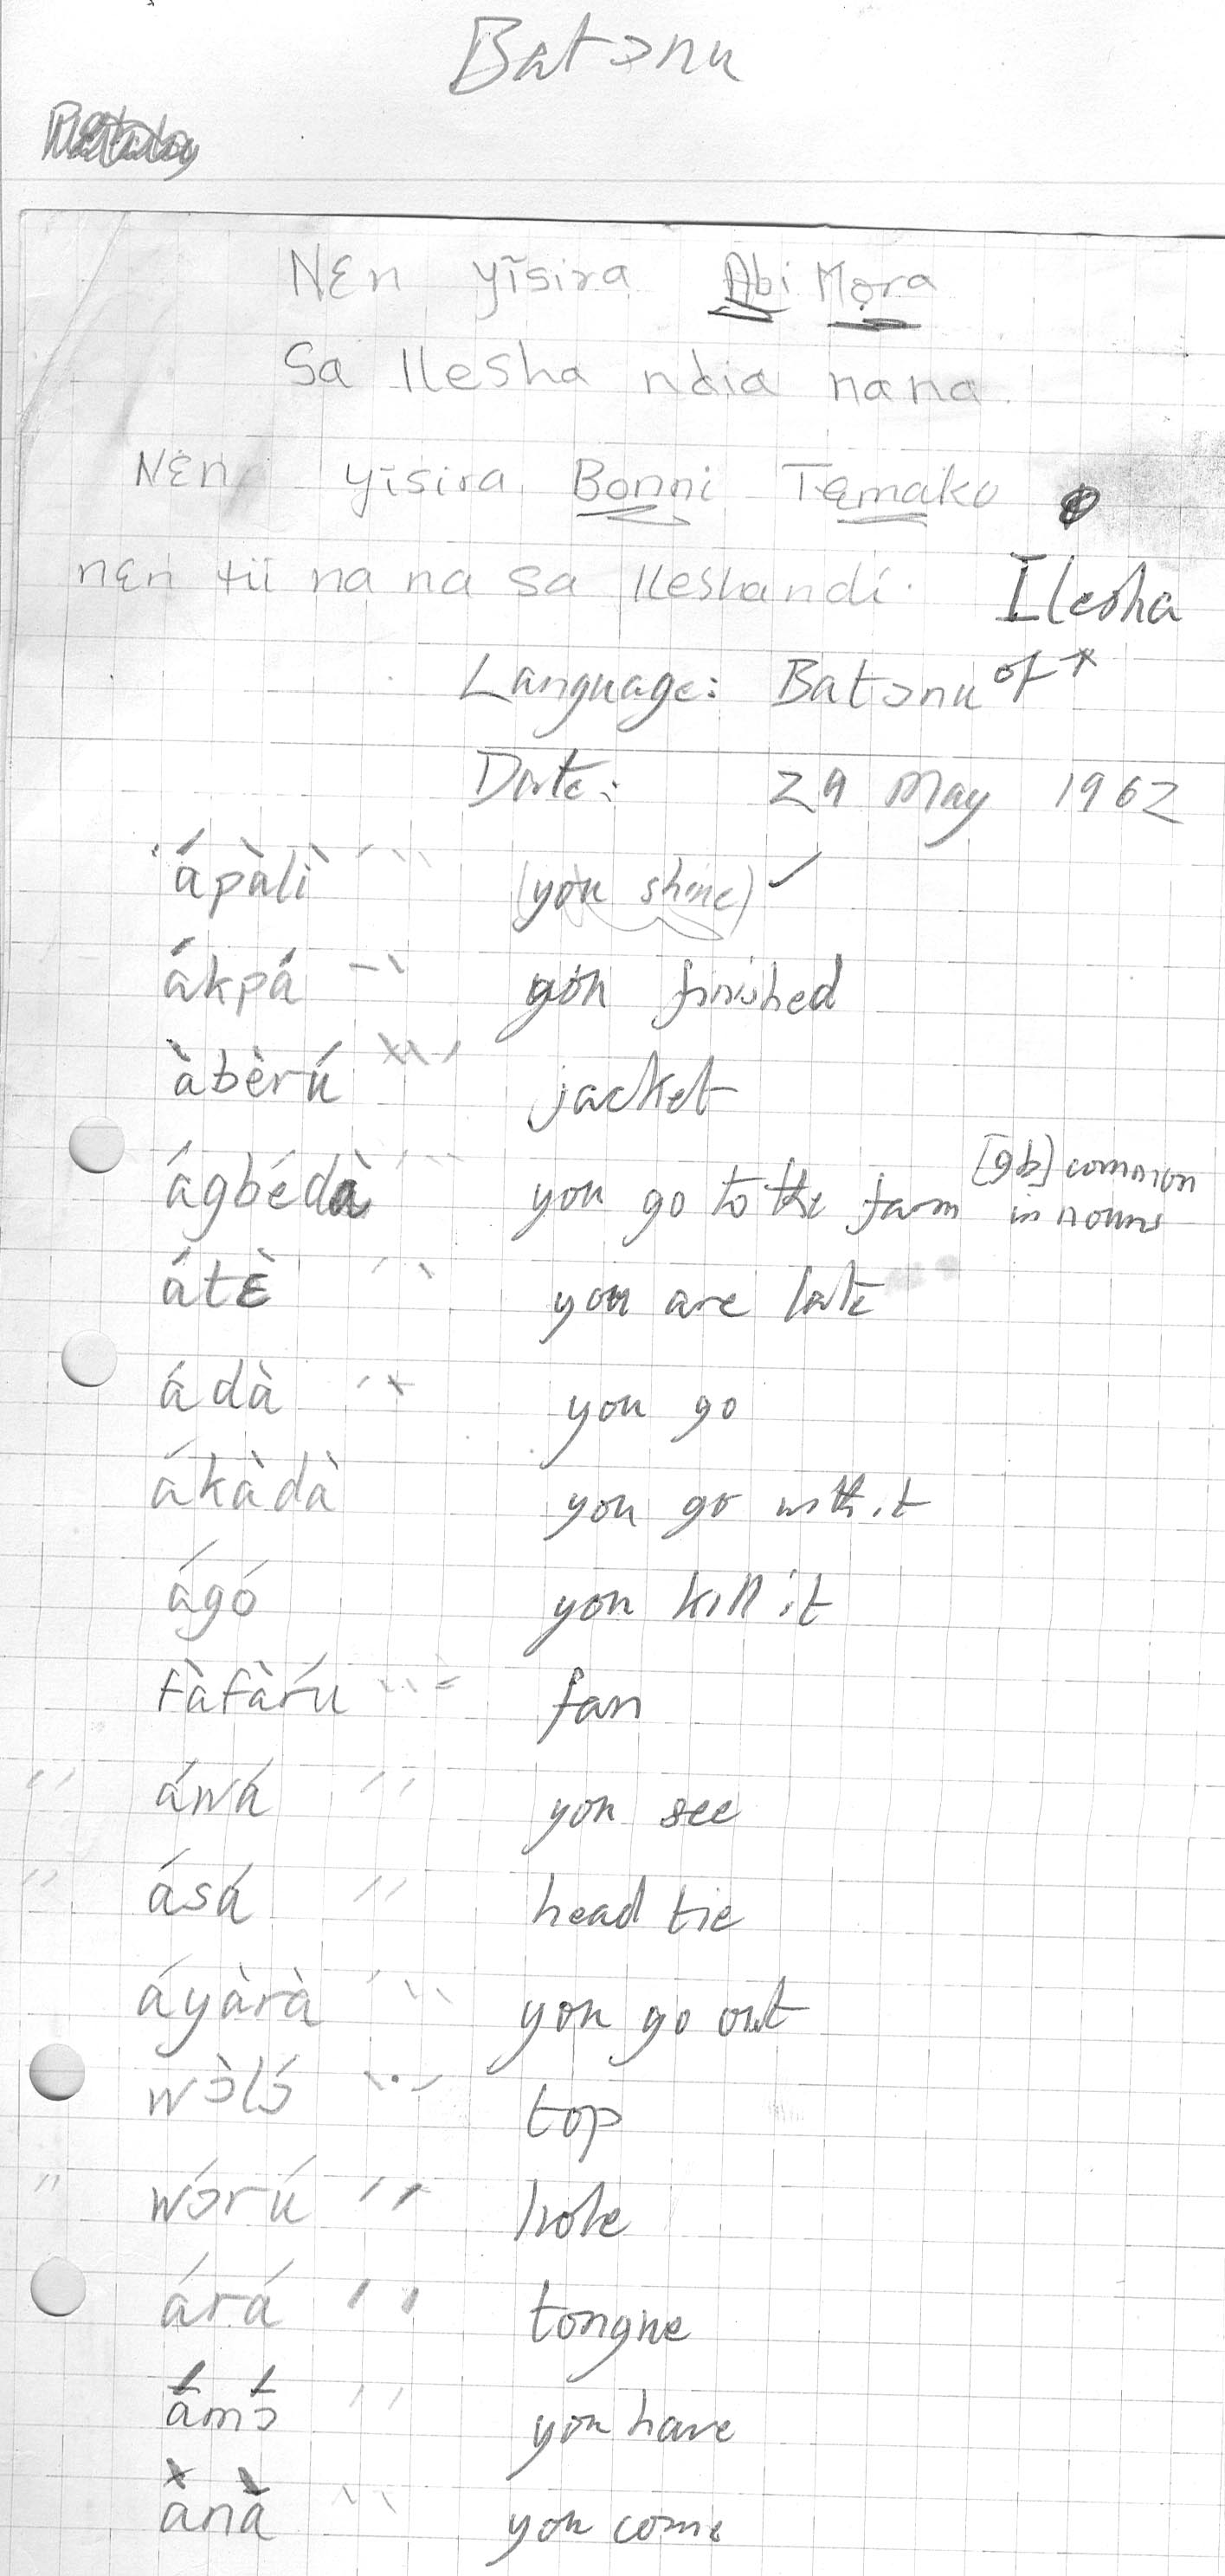 Batɔnu
Nɛn yĩsira Abi Mọra
Sa Ilesha ndia nana.
Nɛn yĩsira Bonni Tẹmako
nɛn tii na na sa Ileshandi.
Ilesha
Language: Batɔnu of *
Date: 29 May 1962
ápàlì ˊ ˋ ˋ (you shine) ✓
ákpá you finished
àbèrú jacket
ágbédà you go to the farm [gb] common in nouns
átɛ̀ ˊ ˋ you are late
ádà you go
ákàdà you go with it
ágó you kill it
fàfàrú fan
ˊ ˊ áwá ˊ ˊ you see
ˊ ˊ ásá ˊ ˊ head tie
áyàrà ˊ ˋ ˋ you go out
wɔ̀lɔ́ top
ˊ ˊ wɔ́rú ˊ ˊ hole
árá ˊ ˊ tongue
ámɔ́ ˊ ˊ you have
ànà ˋ ˋ you come